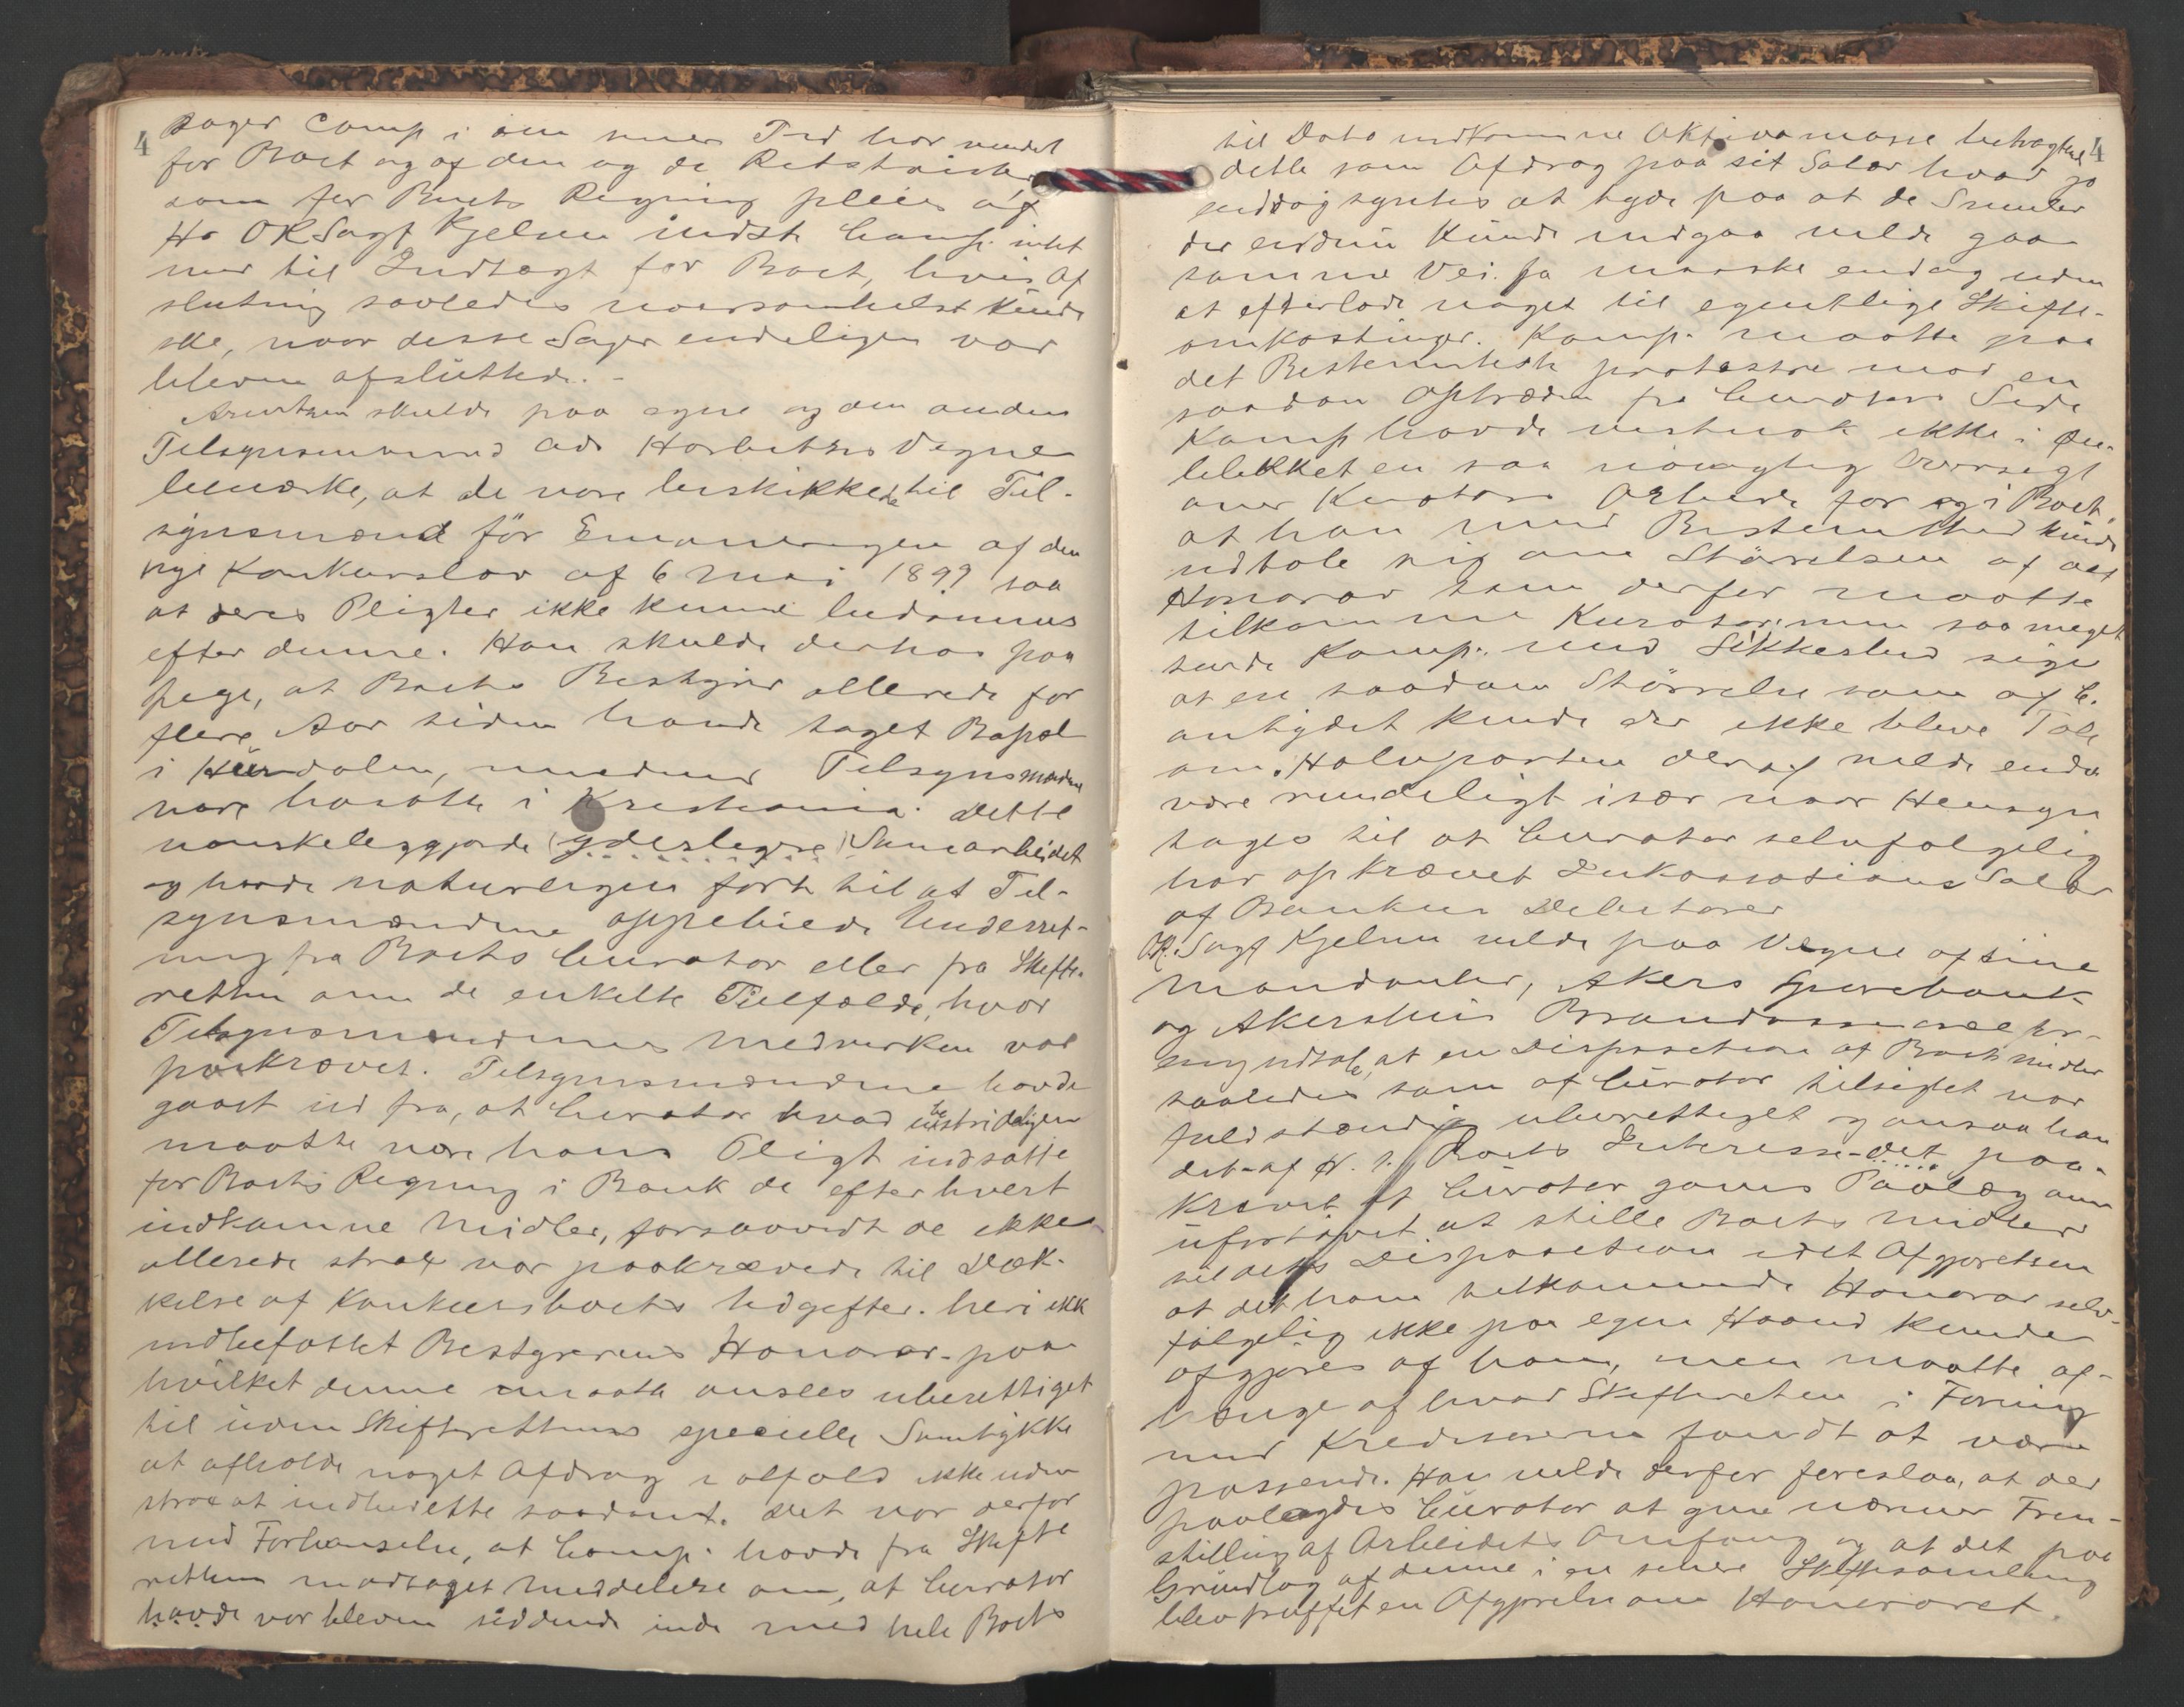 4
Sager Comp i sin Tid har vundet
for Boet og af den og de Retstvister,
som for Boets Regning pleies af
Hr ORSagf Kjelsen indstr Comp. intet
mer til Indtægt for Boet, hvis Af
slutning saaledes naarsomhelst kunde
ske, naar disse Sager endeligen var
bleven afsluttede. -
Arentzen skulde paa egne og den anden
Tilsynsmand Adv Vegne
bemærke, at de vare beskikkede til Til-
synsmænd før Emaneringen af den
nye Konkurslov af 6 Mai 1899 saa
at deres Pligter ikke kunne bedømmes
efter denne. Han skulde derhos paa
pege, at Boets Bestyrer allerede for
flere Aar siden havde taget Bopæl
i Hurdalen, medens Tilsynsmændene
vare bosatte i Kristiania. Dette
vanskeliggjorde (yderligere) Samarbeidet
og havde naturligen ført til at Til-
synsmændene oppebiede Underret-
ning fra Boets Curator eller fra Skifte-
retten om de enkelte Tilfælde, hvor
Tilsynsmændenes Medvirken var
paakrævet. Tilsynsmændene havde
gaaet ud fra, at Curator hvad ubestrideligen
maatte være hans Pligt indsatte
for Boets Regning i Bank de efterhvert
indkomne Midler, forsaavidt de ikke
allerede strax var paakrævede til Dæk-
kelse af Konkursboets Udgifter. heri ikke
indbefattet Bestyrerens Honorar - paa
hvilket denne maatte ansees uberettiget
til uden Skifterettens specielle Samtykke
at afholde noget Afdrag i alfald ikke uden
strax at indberette saadant. Det var derfor
med Forbauselse, at Comp. havde fra Skifte
retten modtaget Meddelelse om, at Curator
havde var bleven siddende inde med hele Boets
4
til Dato indkomne Aktivamasse betragtende
dette som Afdrag paa sit Salær hvad jo
endog syntes at tyde paa at de Smuler
der endnu kunde indgaa vilde gaa
samme Vei. Ja maaske endog uden
at efterlade noget til egentlige Skifte-
omkostninger. Komp. maatte paa
det Bestemteste protestere mod en
saadan Optræden fra Curators Side
Komp havde vistnok ikke i Øie-
blikket en saa nøiagtig Oversigt
over Kurators Arbeide for og i Boet,
at han med Bestemthed kunde
udtale sig om Størrelsen af det
Honorar som derfor maatte
tilkomme Kurator; men saa meget
turde Komp. med Sikkerhed sige
at en saadan Størrelse som af C.
antydet kunde der ikke blive Tale
om. Halvparten deraf vilde endda
være rundeligt især naar Hensyn
tages til at Curator selvfølgelig
har opkrævet Inkassations Salær
af Bankens Debitorer
OR.Sagf Kjelsen vilde paa Vegne af sine
Mandanter, Akers Sparebank
og Akershus Brandassurancefor-
ening udtale, at en Disposition af Boets Midler
saaledes som af Curator tilsigtet var
fuldstændig uberettiget og ansaa han
det af H. t. Boets Interesse det paa-
krævet at Curator gaves Paalæg om
ufortøvet at stille Boets Midler
til dets Disposition idet Afgjørelsen
at det ham tilkommende Honorar selv-
følgelig ikke paa egen Haand kunde
afgjøres af ham, men maatte af-
hænge af hvad Skifteretten i Forening
med Kreditorerne fandt at være
passende. Han vilde derfor foreslaa, at der
paalagdes Curator at give nærmere Frem-
stilling af Arbeidets Omfang og at det paa
Grundlag af denne i en senere Skiftesamling
blev truffet en Afgjørelse om Honoraret.